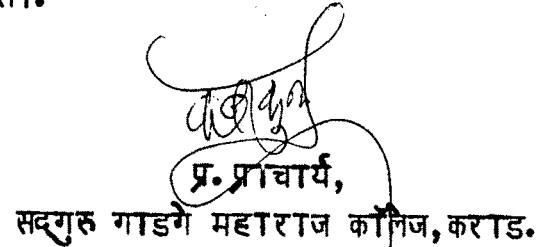 प्र. प्राचार्य,
सदगुरु गाडगे महाराज कॉलेज, कराड.